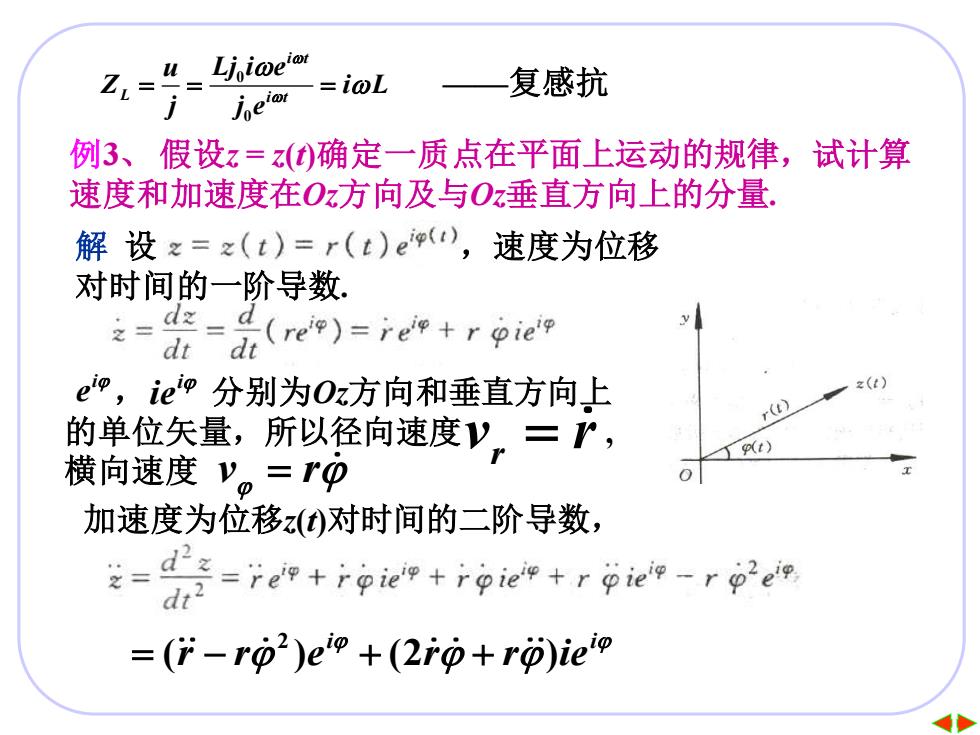 Z_L = u/j = Lj₀iωe^{iωt}/j₀e^{iωt} = iωL ——复感抗
例3、 假设z = z(t)确定一质点在平面上运动的规律，试计算
速度和加速度在Oz方向及与Oz垂直方向上的分量.
解 设 z = z(t) = r(t)e^{iφ(t)}，速度为位移
对时间的一阶导数.
ż = dz/dt = d/dt(re^{iφ}) = ṙe^{iφ} + rφ̇ie^{iφ}
e^{iφ}，ie^{iφ} 分别为Oz方向和垂直方向上
的单位矢量，所以径向速度v_r = ṙ ,
横向速度 v_φ = rφ̇
y
z(t)
r(t)
φ(t)
O
x
加速度为位移z(t)对时间的二阶导数，
z̈ = d²z/dt² = r̈e^{iφ} + ṙφ̇ie^{iφ} + ṙφ̇ie^{iφ} + rφ̈ie^{iφ} − rφ̇²e^{iφ}
= (r̈ − rφ̇²)e^{iφ} + (2ṙφ̇ + rφ̈)ie^{iφ}